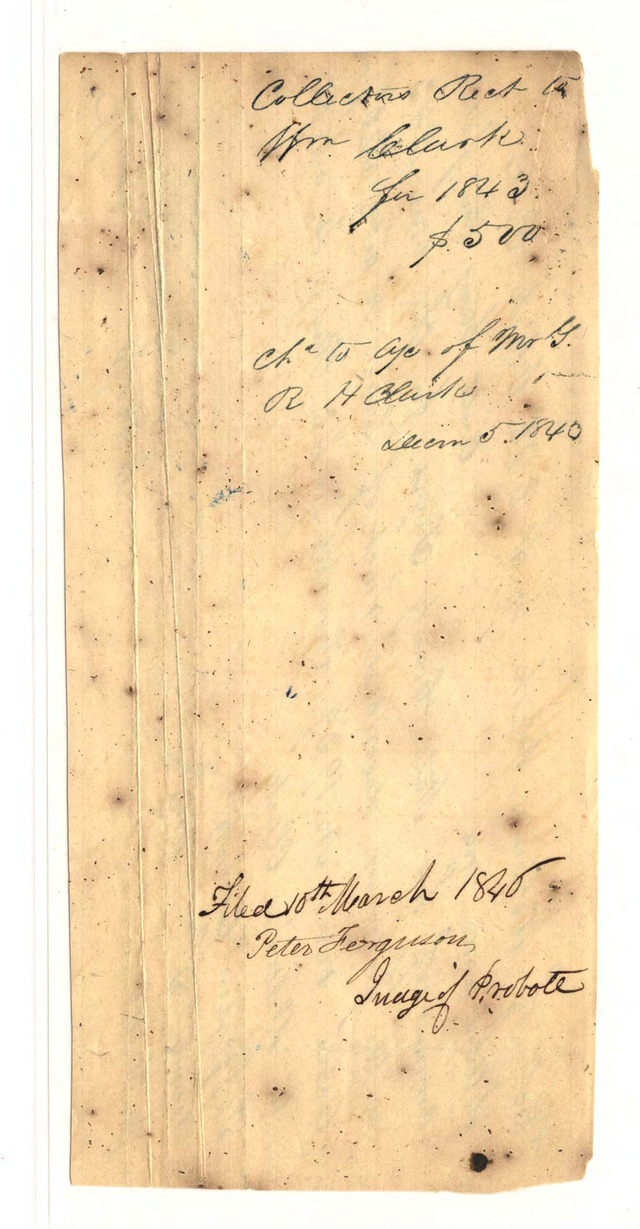 Collectors Rect to
Wm Clark
for 1843
$500
Chd to a/c of Mr G.
R H Clark
Decm 5. 1843
Filed 10th March 1846
Peter Ferguson,
Judge of Probate